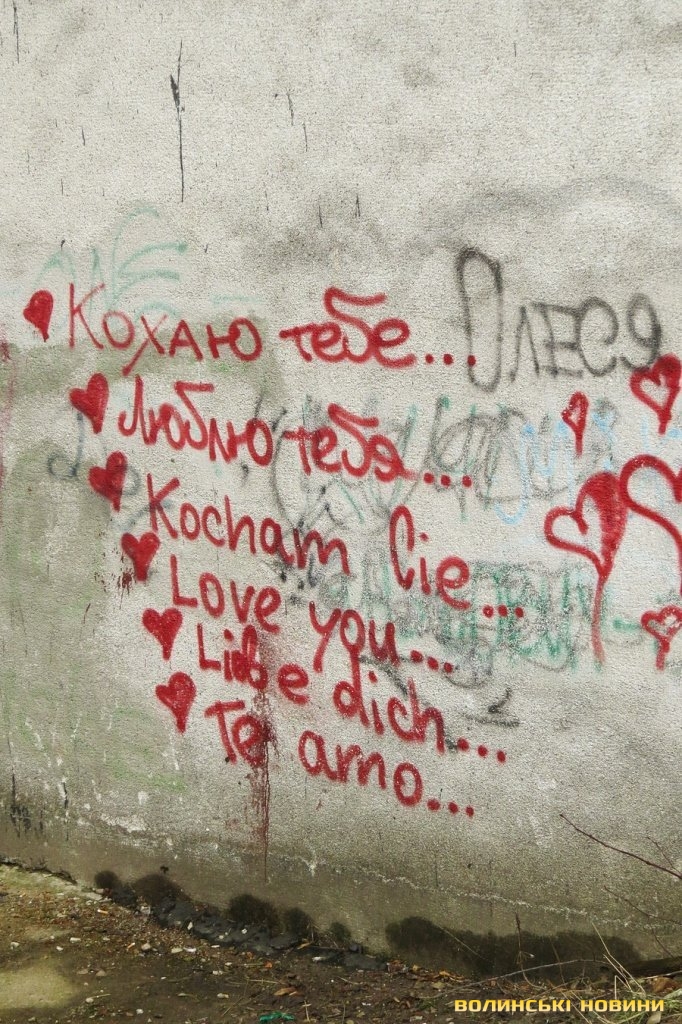 Кохаю тебе...
Олеся
Люблю тебя...
Kocham Cie...
Love you...
Liebe dich...
Te amo...
ВОЛИНСЬКІ НОВИНИ